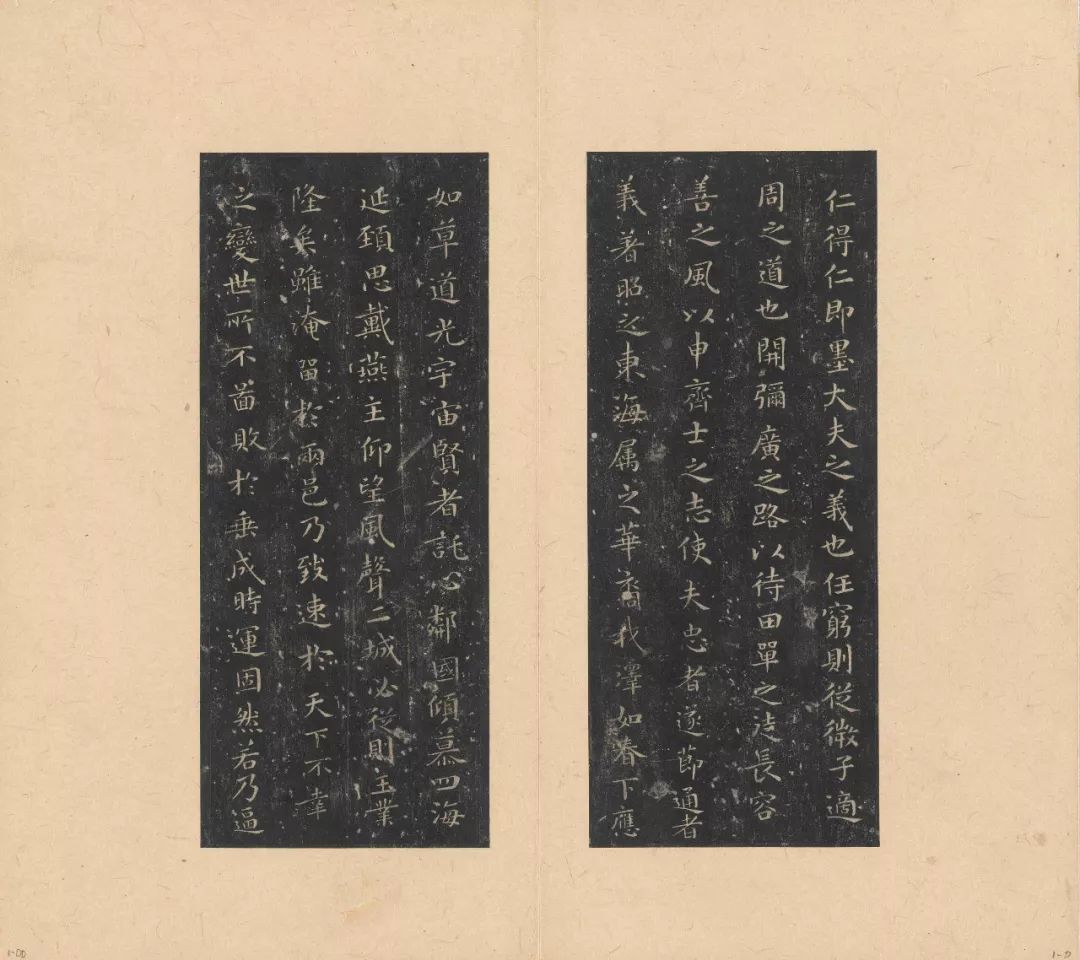 仁得仁即墨大夫之義也任窮則從微子適
周之道也開彌廣之路以待田單之徒長容
善之風以申齊士之志使夫忠者遂節通者
義著昭之東海属之華裔我澤如春下應
如草道光宇宙賢者託心鄰國傾慕四海
延頸思戴燕主仰望風聲二城必從則王業
隆矣雖淹留於兩邑乃致速於天下不幸
之變世所不啚敗於垂成時運固然若乃逼
1-00
1-0